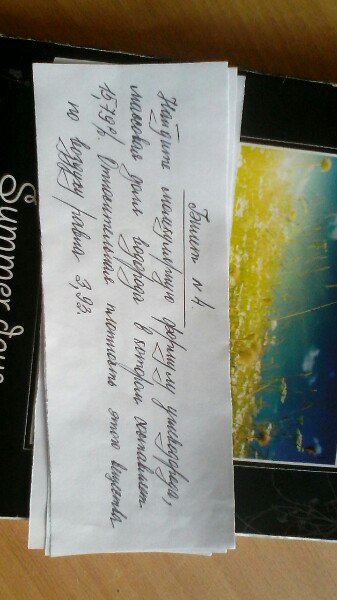 Билет № 4
Найдите молекулярную формулу углеводорода,
массовая доля водорода в котором составляет
15,79%. Относительная плотность этого вещества
по воздуху равна 3,93.
Summer days